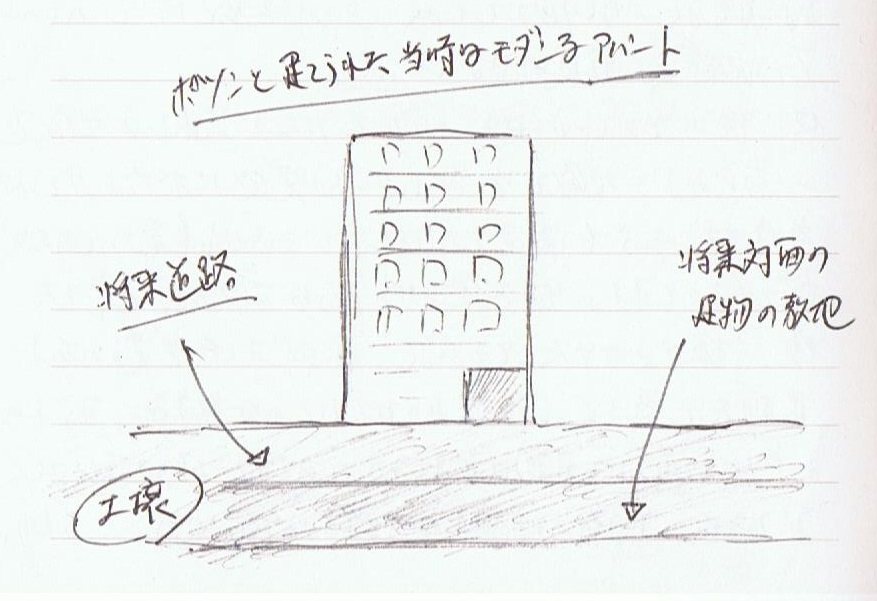 ポツンと建てられた、当時はモダンなアパート
将来道路。
将来対面の
建物の敷地
土壌